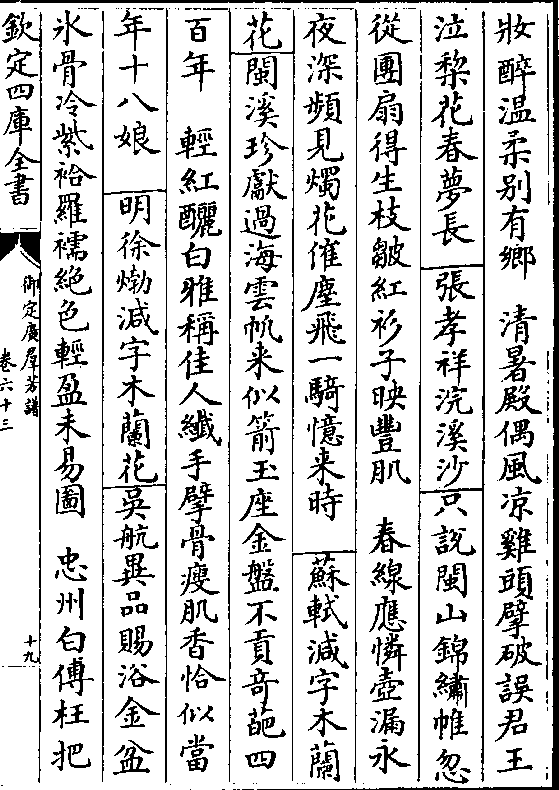 妝醉温柔别有鄉　清暑殿偶風凉雞頭擘破誤君王
泣棃花春夢長　張孝祥浣溪沙　只說閩山錦繡帷忽
從團扇得生枝皺紅衫子映豐肌　春線應憐壺漏永
夜深頻見燭花催塵飛一騎憶来時　蘇軾減字木蘭
花　閩溪珍獻過海雲帆来似箭玉座金盤不貢奇葩四
百年　輕紅釃白雅稱佳人纖手擘骨瘦肌香恰似當
年十八娘　明徐𤊹減字木蘭花　吳航異品賜浴金盆
氷骨冷紫袷羅襦絶色輕盈未易圖　忠州白傅枉把
欽定四庫全書
御定廣羣芳譜
卷六十三
十九